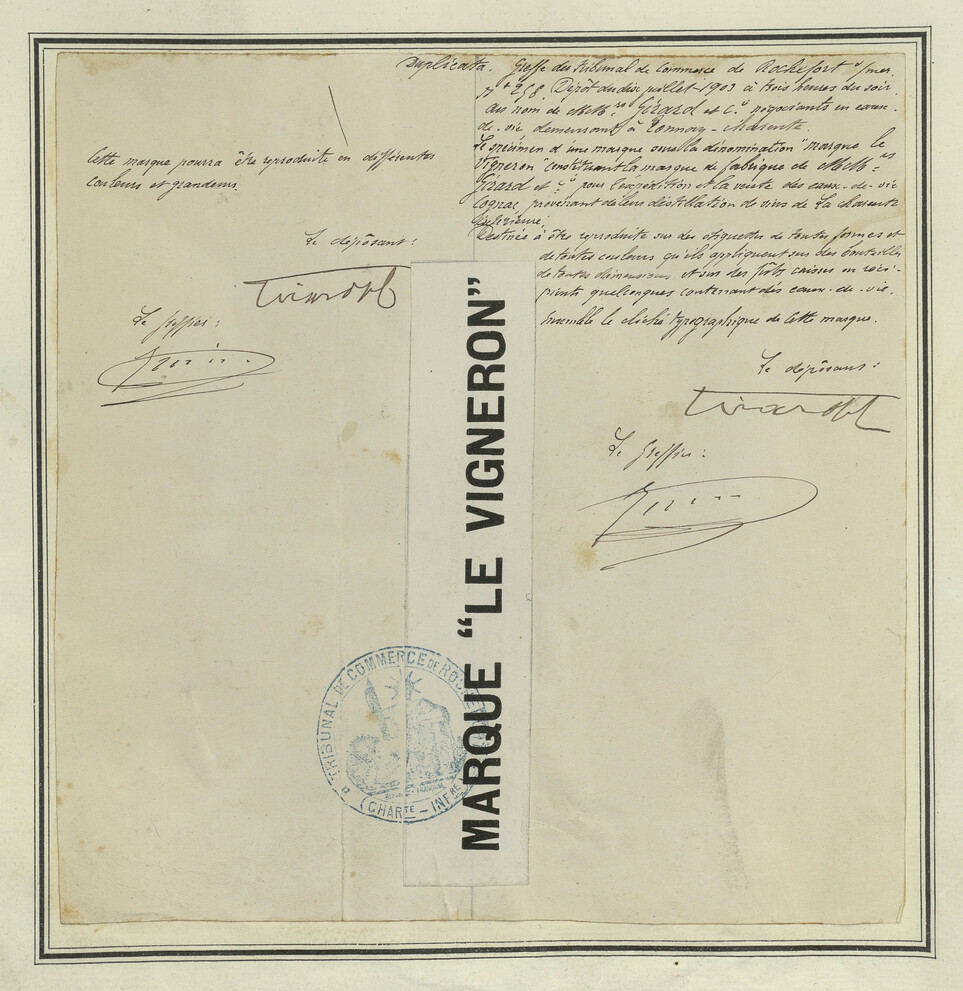 Duplicata. Greffe du tribunal de Commerce de Rochefort s/mer.
N° 258 Dépôt du dix juillet 1903 à trois heures du soir
au nom de MM. Girard et Cie négociants en eaux-
de-vie demeurant à Tonnay-Charente.
Le spécimen d'une marque sous la dénomination "marque le
Vigneron" constituant la marque de fabrique de MM.
Girard et Cie pour l'expédition et la vente des eaux-de-vie
Cognac provenant de leur distillation de vins de la Charente
Inférieure.
Destinés à être reproduite sur des étiquettes de toutes formes et
de toutes couleurs qu'ils appliquent sur des bouteilles
de toutes dimensions et sur des fûts caisses ou réci-
pients quelconques contenant des eaux-de-vie.
Ensemble le cliché typographique de cette marque.
Le déposant:
Le Greffier:
Cette marque pourra être reproduite en différentes
couleurs et grandeurs.
Le déposant:
Le Greffier:
MARQUE "LE VIGNERON"
TRIBUNAL DE COMMERCE DE ROCHE
(CHARTE - INFRE